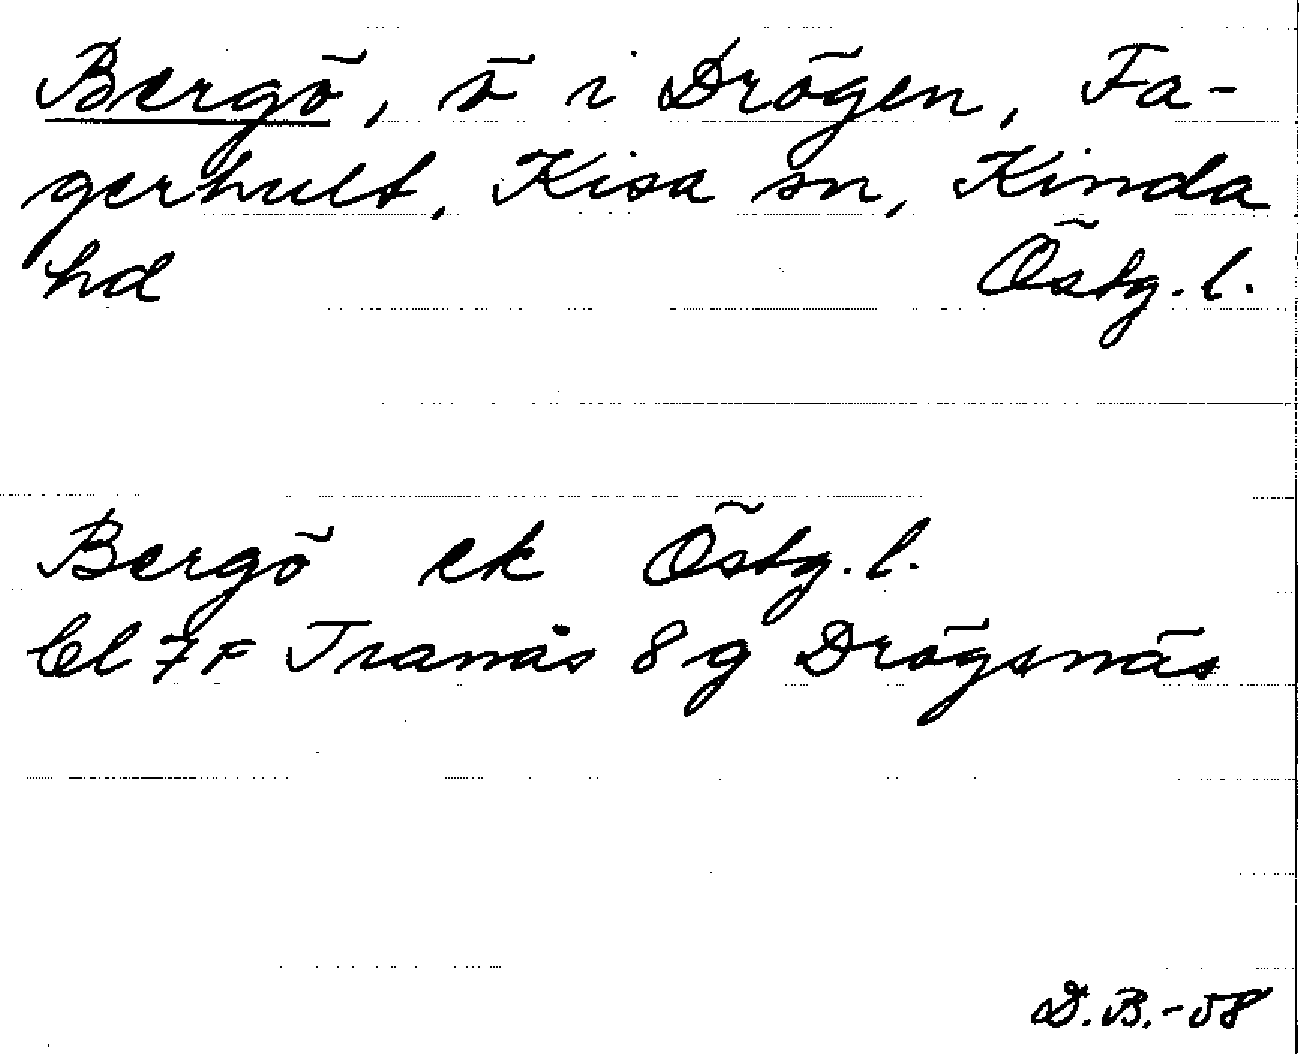 Bergö, ö i Drögen, Fa-
gerhult, Kisa sn, Kinda
hd Östg. l.
Bergö ek Östg. l.
Bl 7F Tranås 8g Drögsnäs
D.B.-58